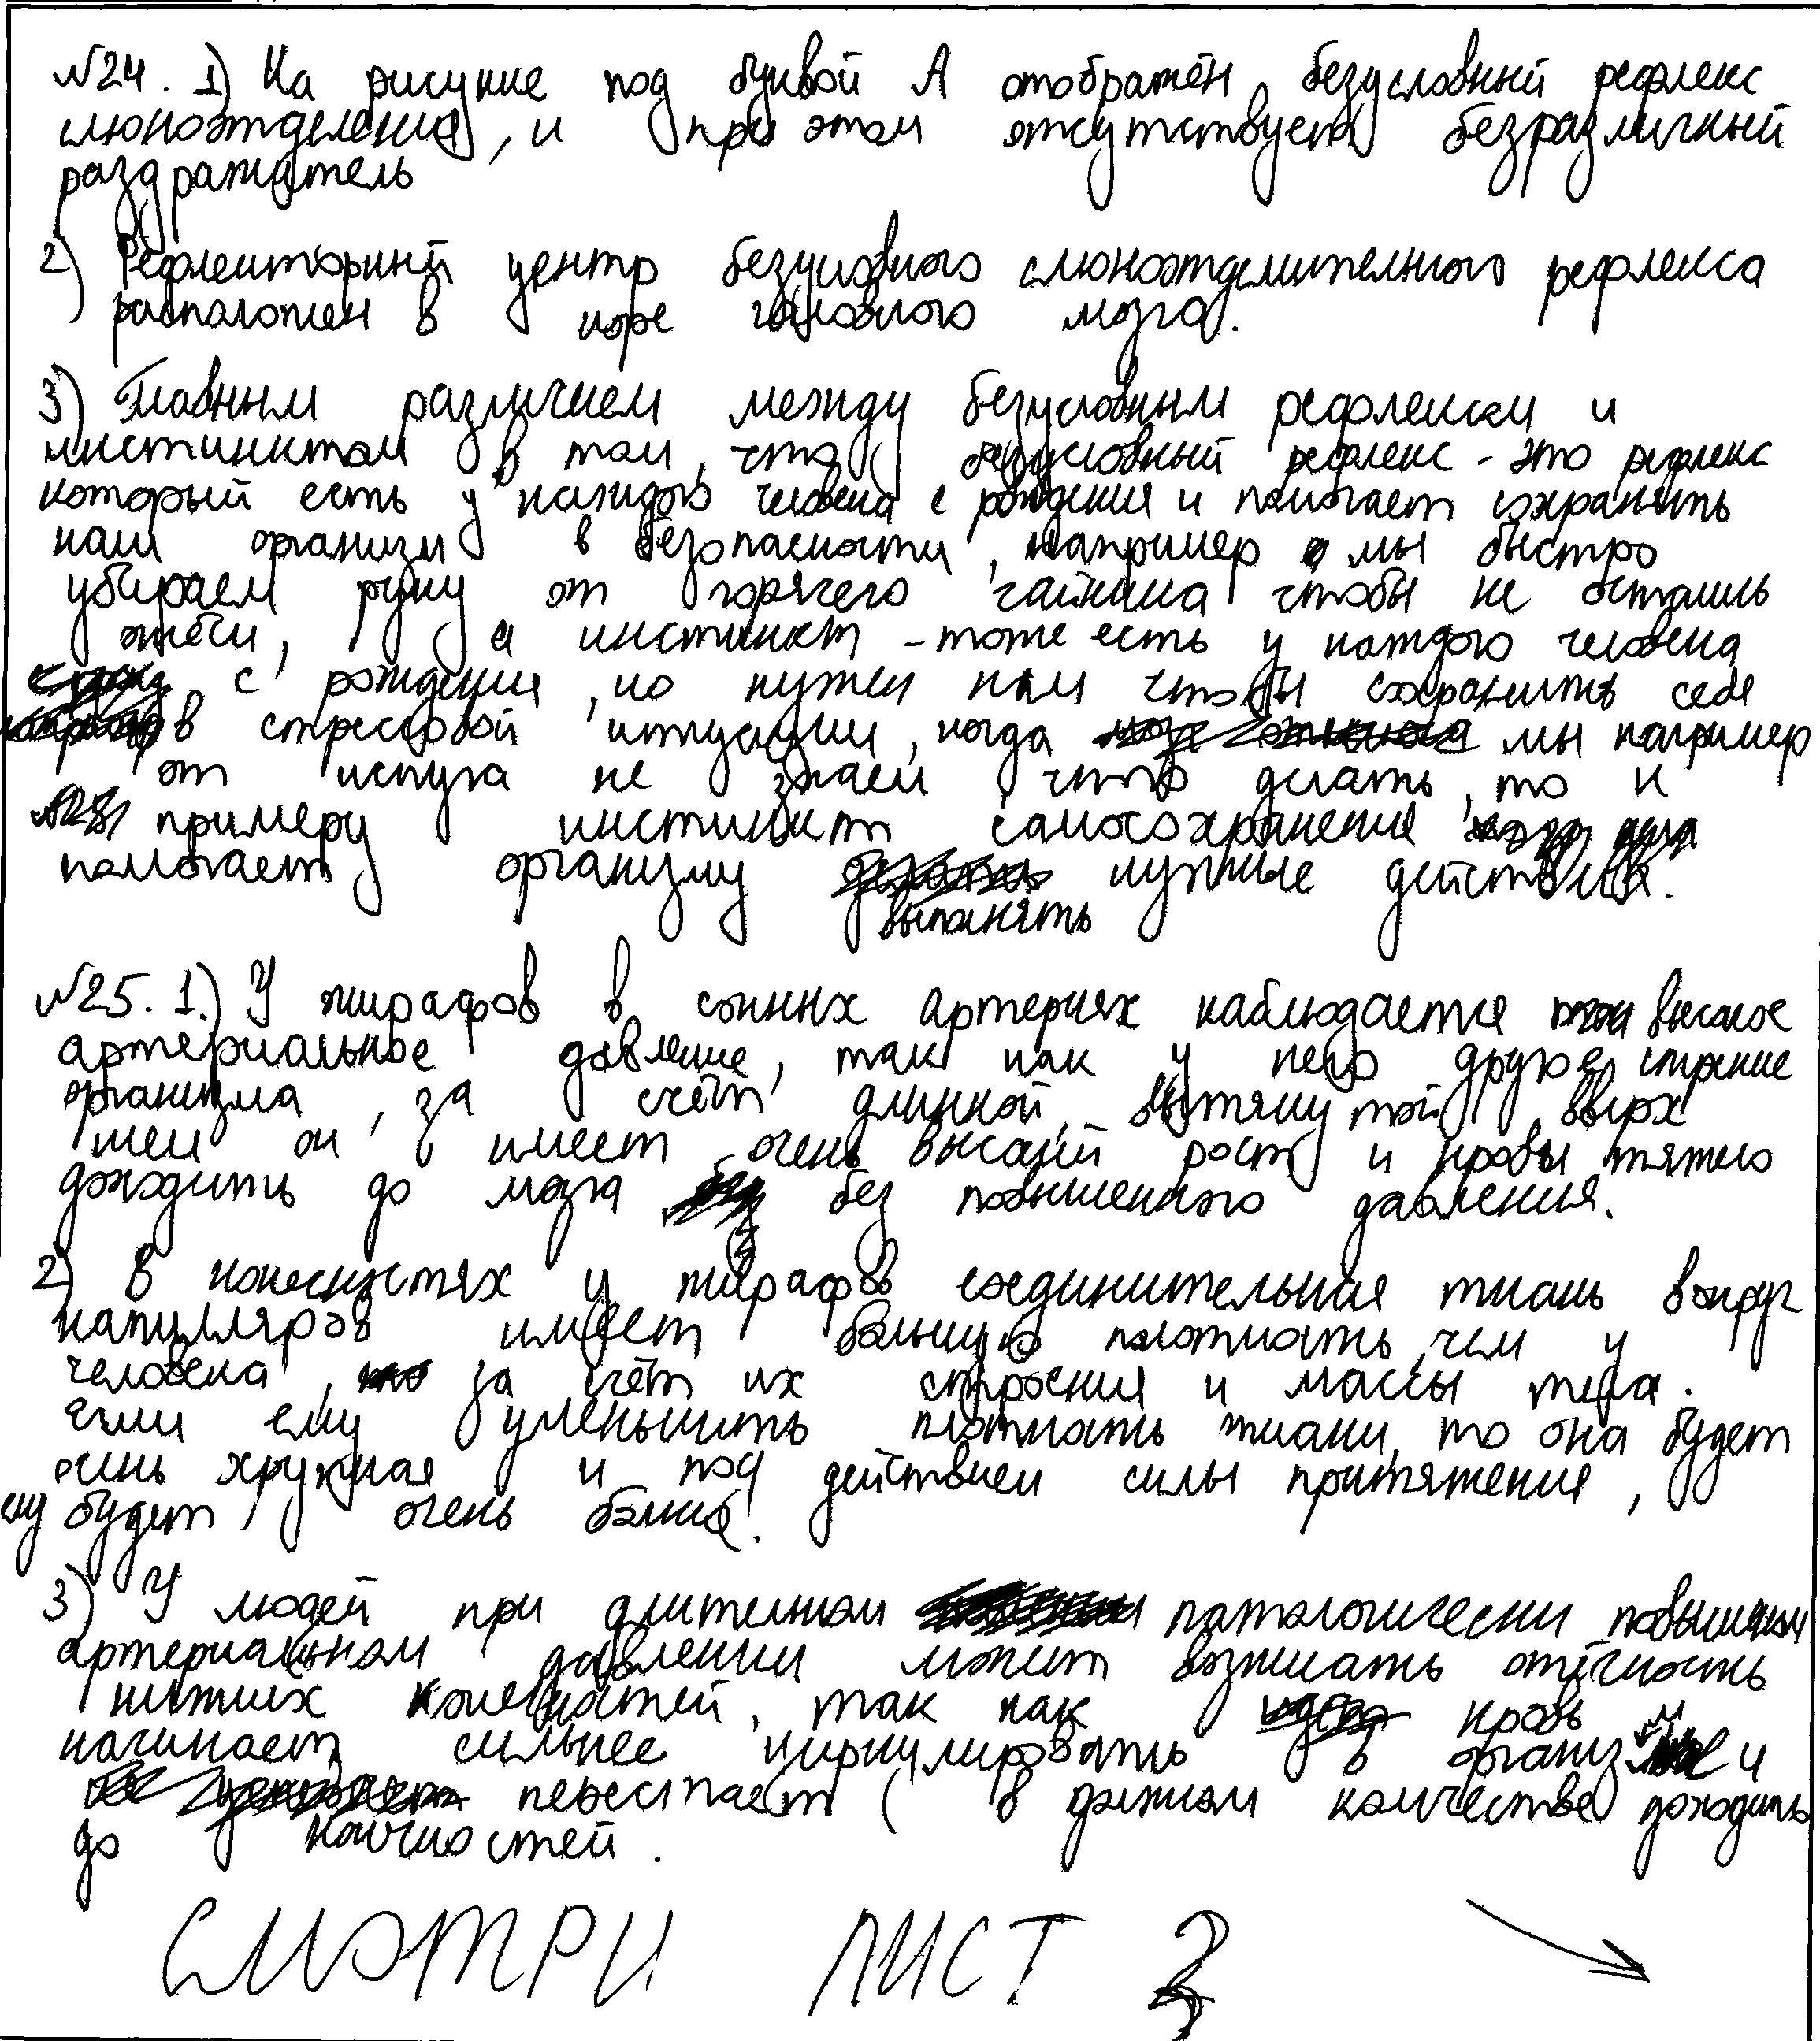 №24. 1) На рисунке под буквой А отображён безусловный рефлекс
слюноотделения, и при этом отсутствует безразличный
раздражитель
2) Рефлекторный центр безусловного слюноотделительного рефлекса
расположен в коре головного мозга.
3) Главным различием между безусловным рефлексом и
инстинктом в том, что безусловный рефлекс - это рефлекс
который есть у каждого человека с рождения и помогает сохранять
наш организм в безопасности, например мы быстро
убираем руку от горячего чайника чтобы не остались
ожоги, а инстинкт - тоже есть у каждого человека
с рождения, но нужен нам чтобы сохранить себя
в стрессовой ситуации, когда мы например
от испуга не знаем что делать, то к
примеру инстинкт самосохранения
помогает организму нужные действия.
выполнять
№25. 1.) У жирафов в сонных артериях наблюдается высокое
артериальное давление, так как у него другое строение
организма, за счёт длинной, вытянутой вверх
шеи он имеет очень высокий рост и кровы тяжело
доходить до мозга без повышенного давления.
2) В конечностях у жирафов соединительная ткань вокруг
капилляров имеет большую плотность, чем у
человека, за счёт их строения и массы тела.
если ему уменьшить плотность ткани, то она будет
очень хрупкая и под действием силы притяжения,
ему будет очень больно.
3) У людей при длительном патологически повышенном
артериальном давлении может возникать отёчность
нижних конечностей, так как кровь
начинает сильнее циркулировать в организме и
перестаёт в должном количестве доходить
до конечностей.
СМОТРИ ЛИСТ 2